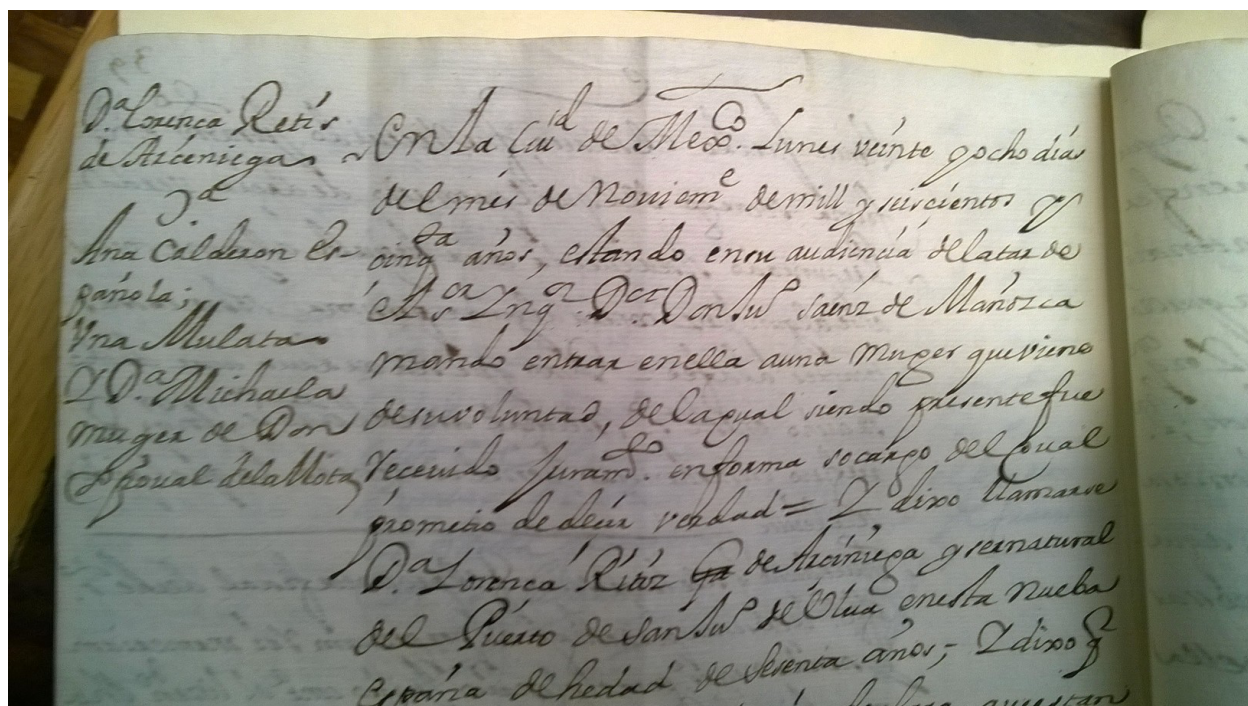 Da. Lorença Retís
de Arceniega
Ana Calderon es-
pañola;
Vna Mulata
Y Da. Michaela
muger de Don
xpoual de la Mota
En la Ciud de Mexco. Lunes veinte y ocho dias
del mes de Nouieme de mill y seiscientos y
cinqta años, estando en su audiencia de la tarde
el sor Ynqor Dor Don Juo saenz de Mañozca
mando entrar en ella a una muger que viene
de su voluntad, de la qual siendo presente fue
receuido juramto. en forma so cargo del qual
prometio de decir verdad = Y dixo llamarse
Da. Lorença Ritiz de Arciniega y ser natural
del Puerto de san Juo de Vlua en esta nueba
españa de hedad de sesenta años; Y dixo q